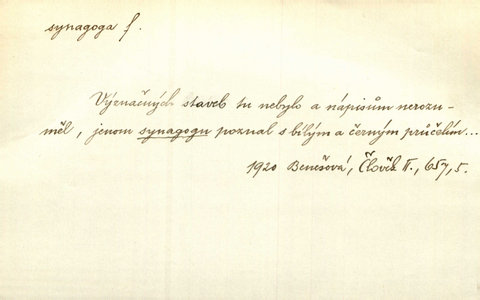 synagoga f.
Význačných staveb tu nebylo a nápisům nerozu-
měl, jenom synagogu poznal s bílým a černým průčelím...
1920 Benešová, Člověk II., 657, 5.